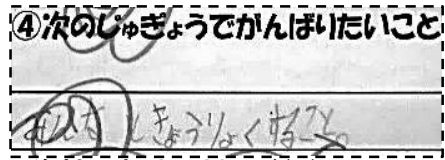 ④次のじゅぎょうでがんばりたいこと
みんなときょうりょくすること。